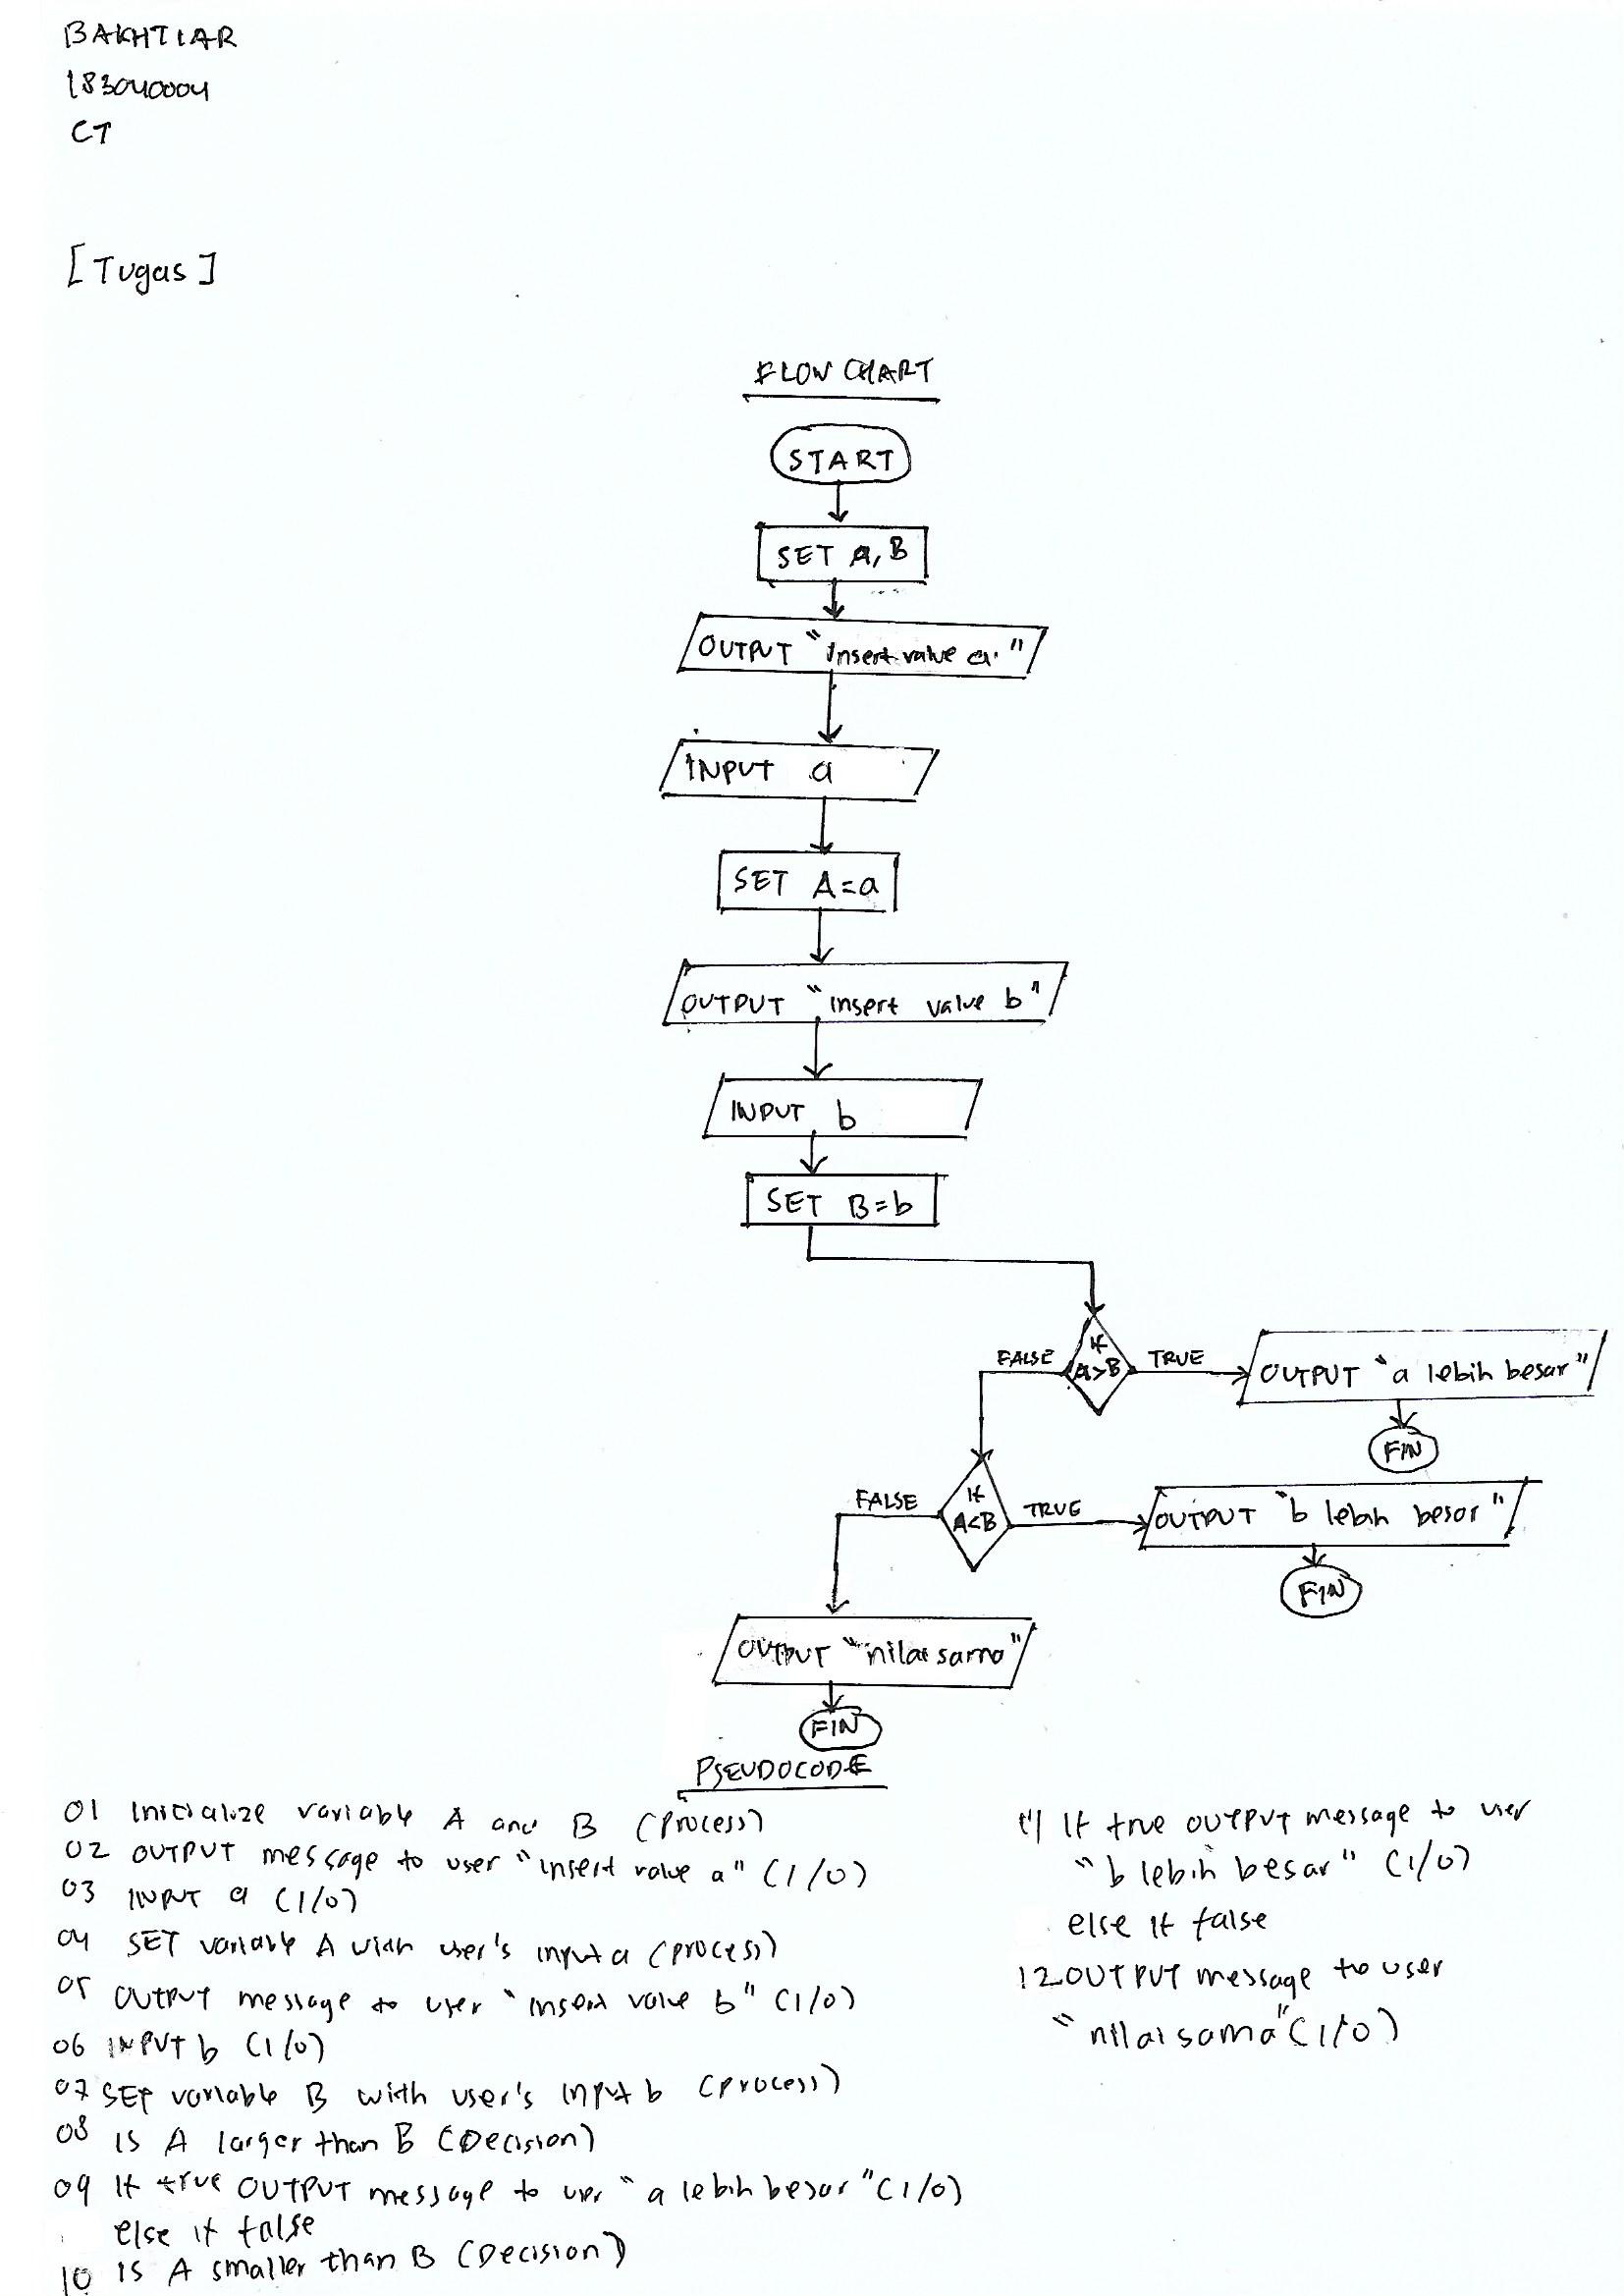 BAKHTIAR
183040004
CT
[Tugas]
FLOWCHART
START
SET A, B
OUTPUT "insert value a"
INPUT a
SET A=a
OUTPUT "insert value b"
INPUT b
SET B=b
If
A>B
FALSE
TRUE
OUTPUT "a lebih besar"
FIN
If
A<B
FALSE
TRUE
OUTPUT "b lebih besar"
FIN
OUTPUT "nilai sama"
FIN
PSEUDOCODE
01 Initialize variable A and B (process)
02 OUTPUT message to user "insert value a" (I/O)
03 INPUT a (I/O)
04 SET variable A with user's input a (process)
05 OUTPUT message to user "insert value b" (I/O)
06 INPUT b (I/O)
07 SET variable B with user's input b (process)
08 IS A larger than B (Decision)
09 If true OUTPUT message to user "a lebih besar" (I/O)
else if false
10 IS A smaller than B (Decision)
11 If true OUTPUT message to user
"b lebih besar" (I/O)
else if false
12 OUTPUT message to user
"nilai sama" (I/O)